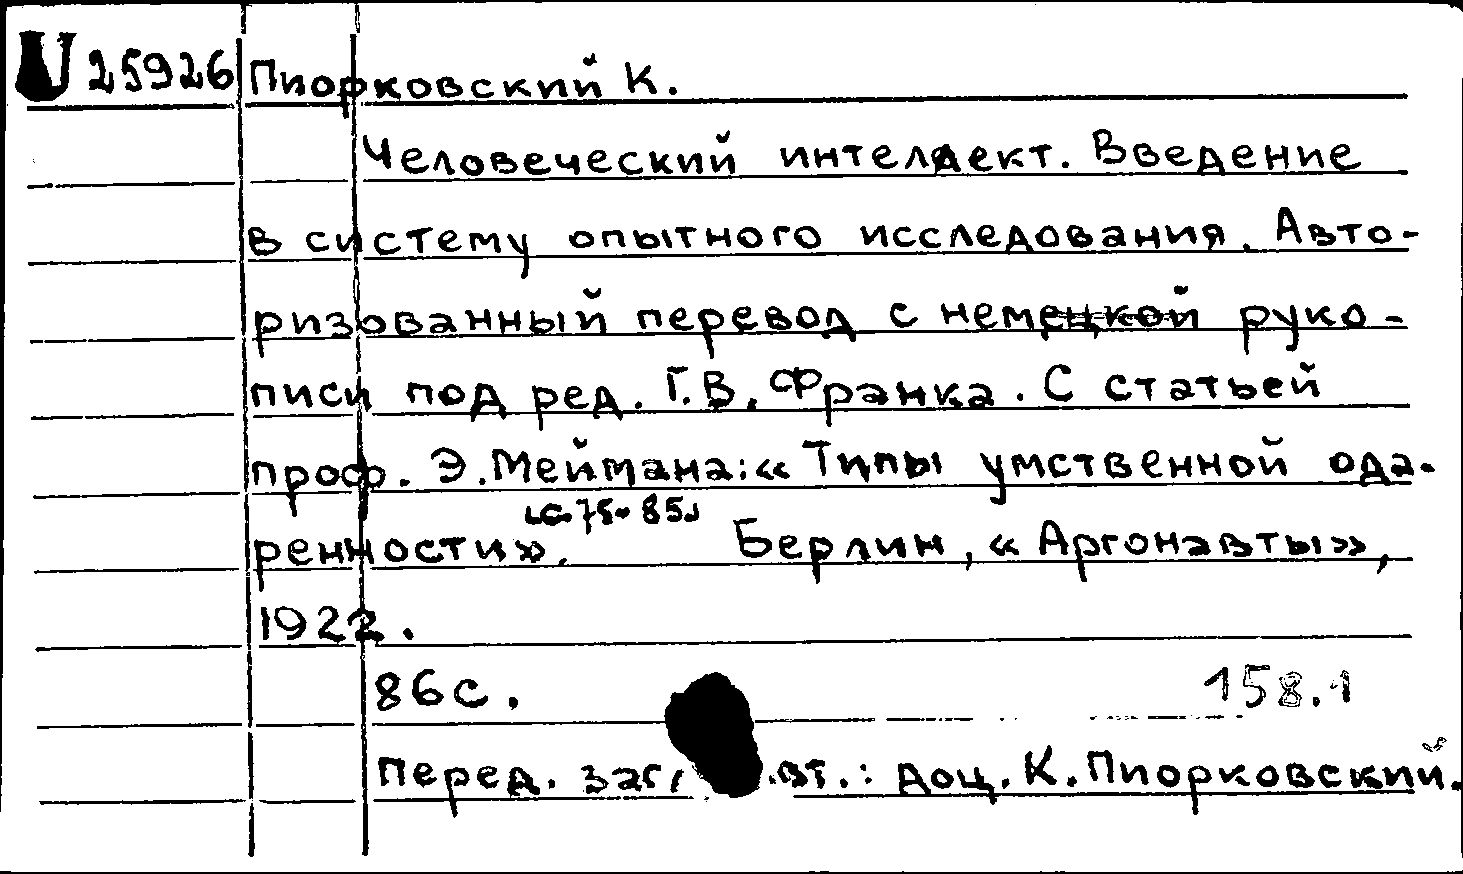 25926 Пиорковский К.
Человеческий интеллект. Введение
в систему опытного исследования. Авто-
ризованный перевод с немецкой руко-
писи под ред. Г.В. Франка. С статьей
проф. Э. Меймана: «Типы умственной ода-
ренности».
с. 75-85
Берлин, «Аргонавты»,
1922.
86 с. 158.1
Перед. загл. авт.: доц. К. Пиорковский.